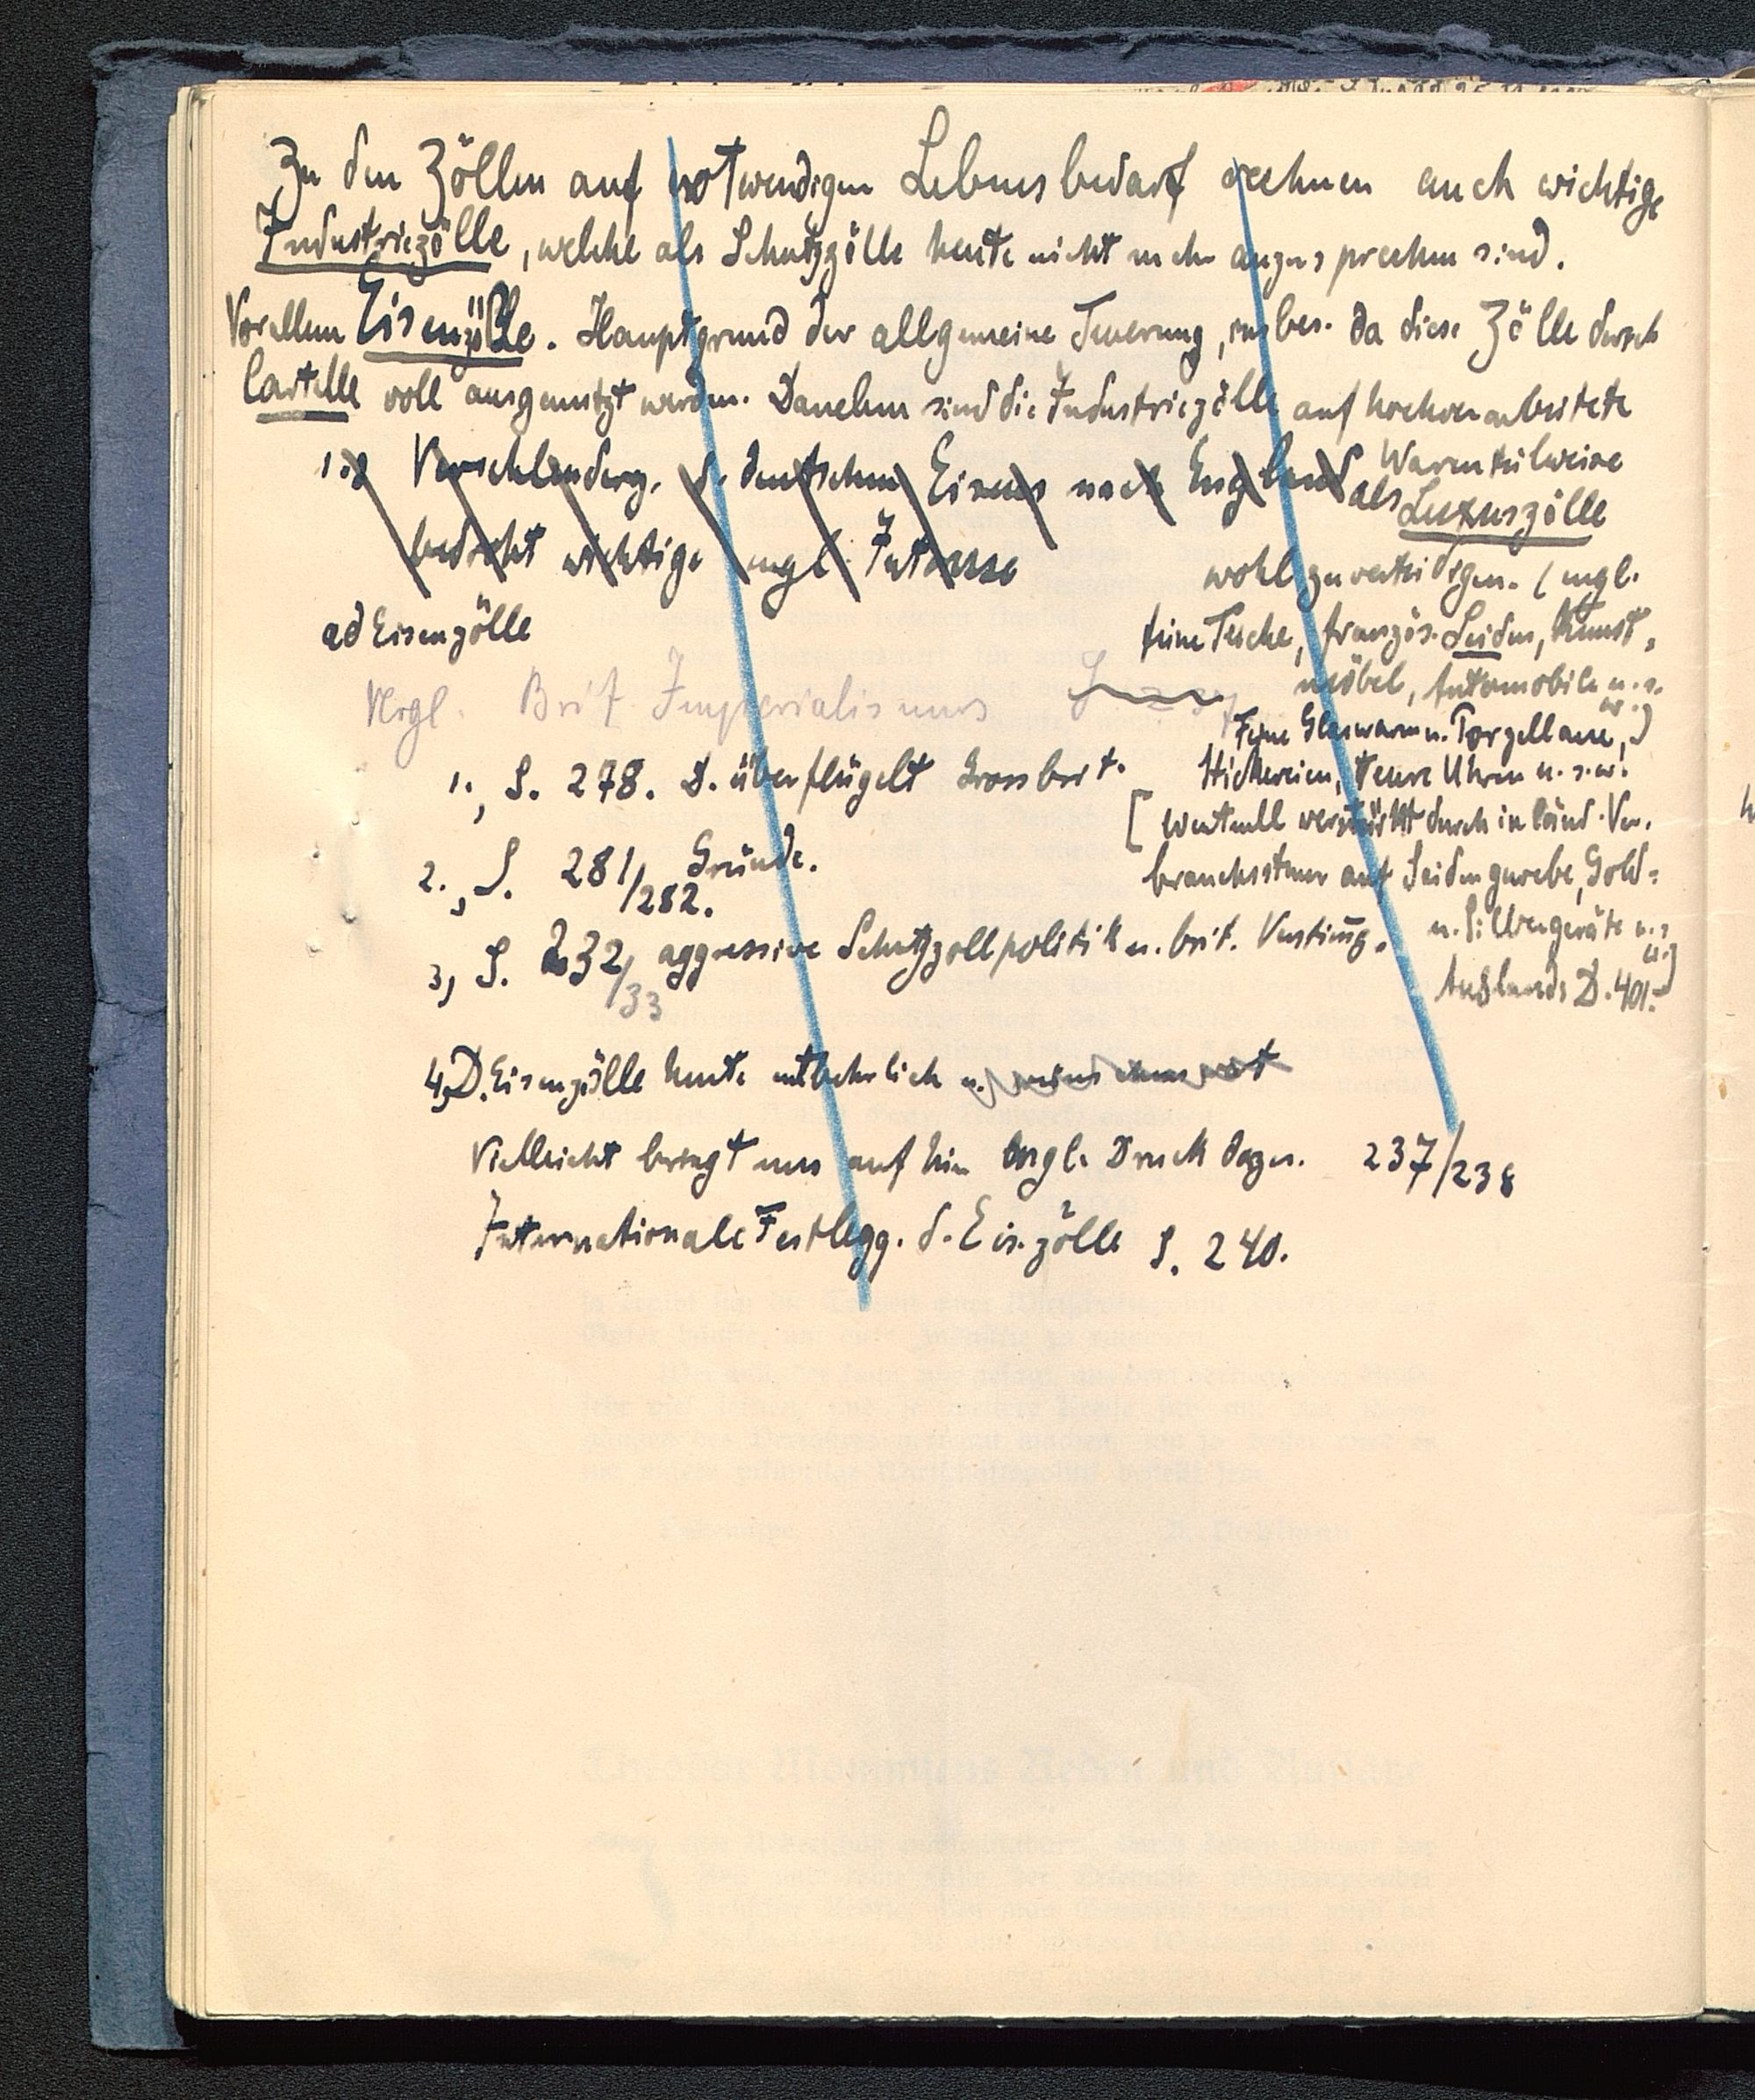 Zu den Zöllen auf notwendigen Lebensbedarf rechnen auch wichtige
Industriezölle, welche als Schutzzölle heute nicht mehr anzusprechen sind.
Vor allem Eisenzölle. Hauptgrund der allgemeine Teuerung, insbes. da diese Zölle durch
Cartelle voll ausgenutzt werden. Daneben sind die Industriezölle auf hochverarbeitete
Waren teilweise
als Luxuszölle
wohl zu verteidigen. (engl.
feine Tuche, französ. Seiden, Kunst,
möbel, Automobile u. s. w.
Feine Glaswaren u. Porzellane,)
Stickereien, teure Uhren u. s. w.
[eventuell verstärkt durch inländ. Ver.
brauchssteuer auf Seidengewebe, Gold=
u. Silbergeräte u. s.
w.]
Auslands D. 401.
1., Verschleuderg. d. deutschen Eisens nach England
bedroht wichtige engl. Interesse
ad Eisenzölle
Vergl. Brit Imperialismus
1., S. 278. D. überflügelt Grossbrit.
2., S. 281/282. Gründe.
3, S. 232/33 aggressive Schutzzollpolitik u. brit. Verstimg.
4, D. Eisenzölle heute entbehrlich u.
Vielleicht bringt uns auf hin engl. Druck dazu. 237/238
Internationale Festlegg. d. Eis.zölle S. 240.